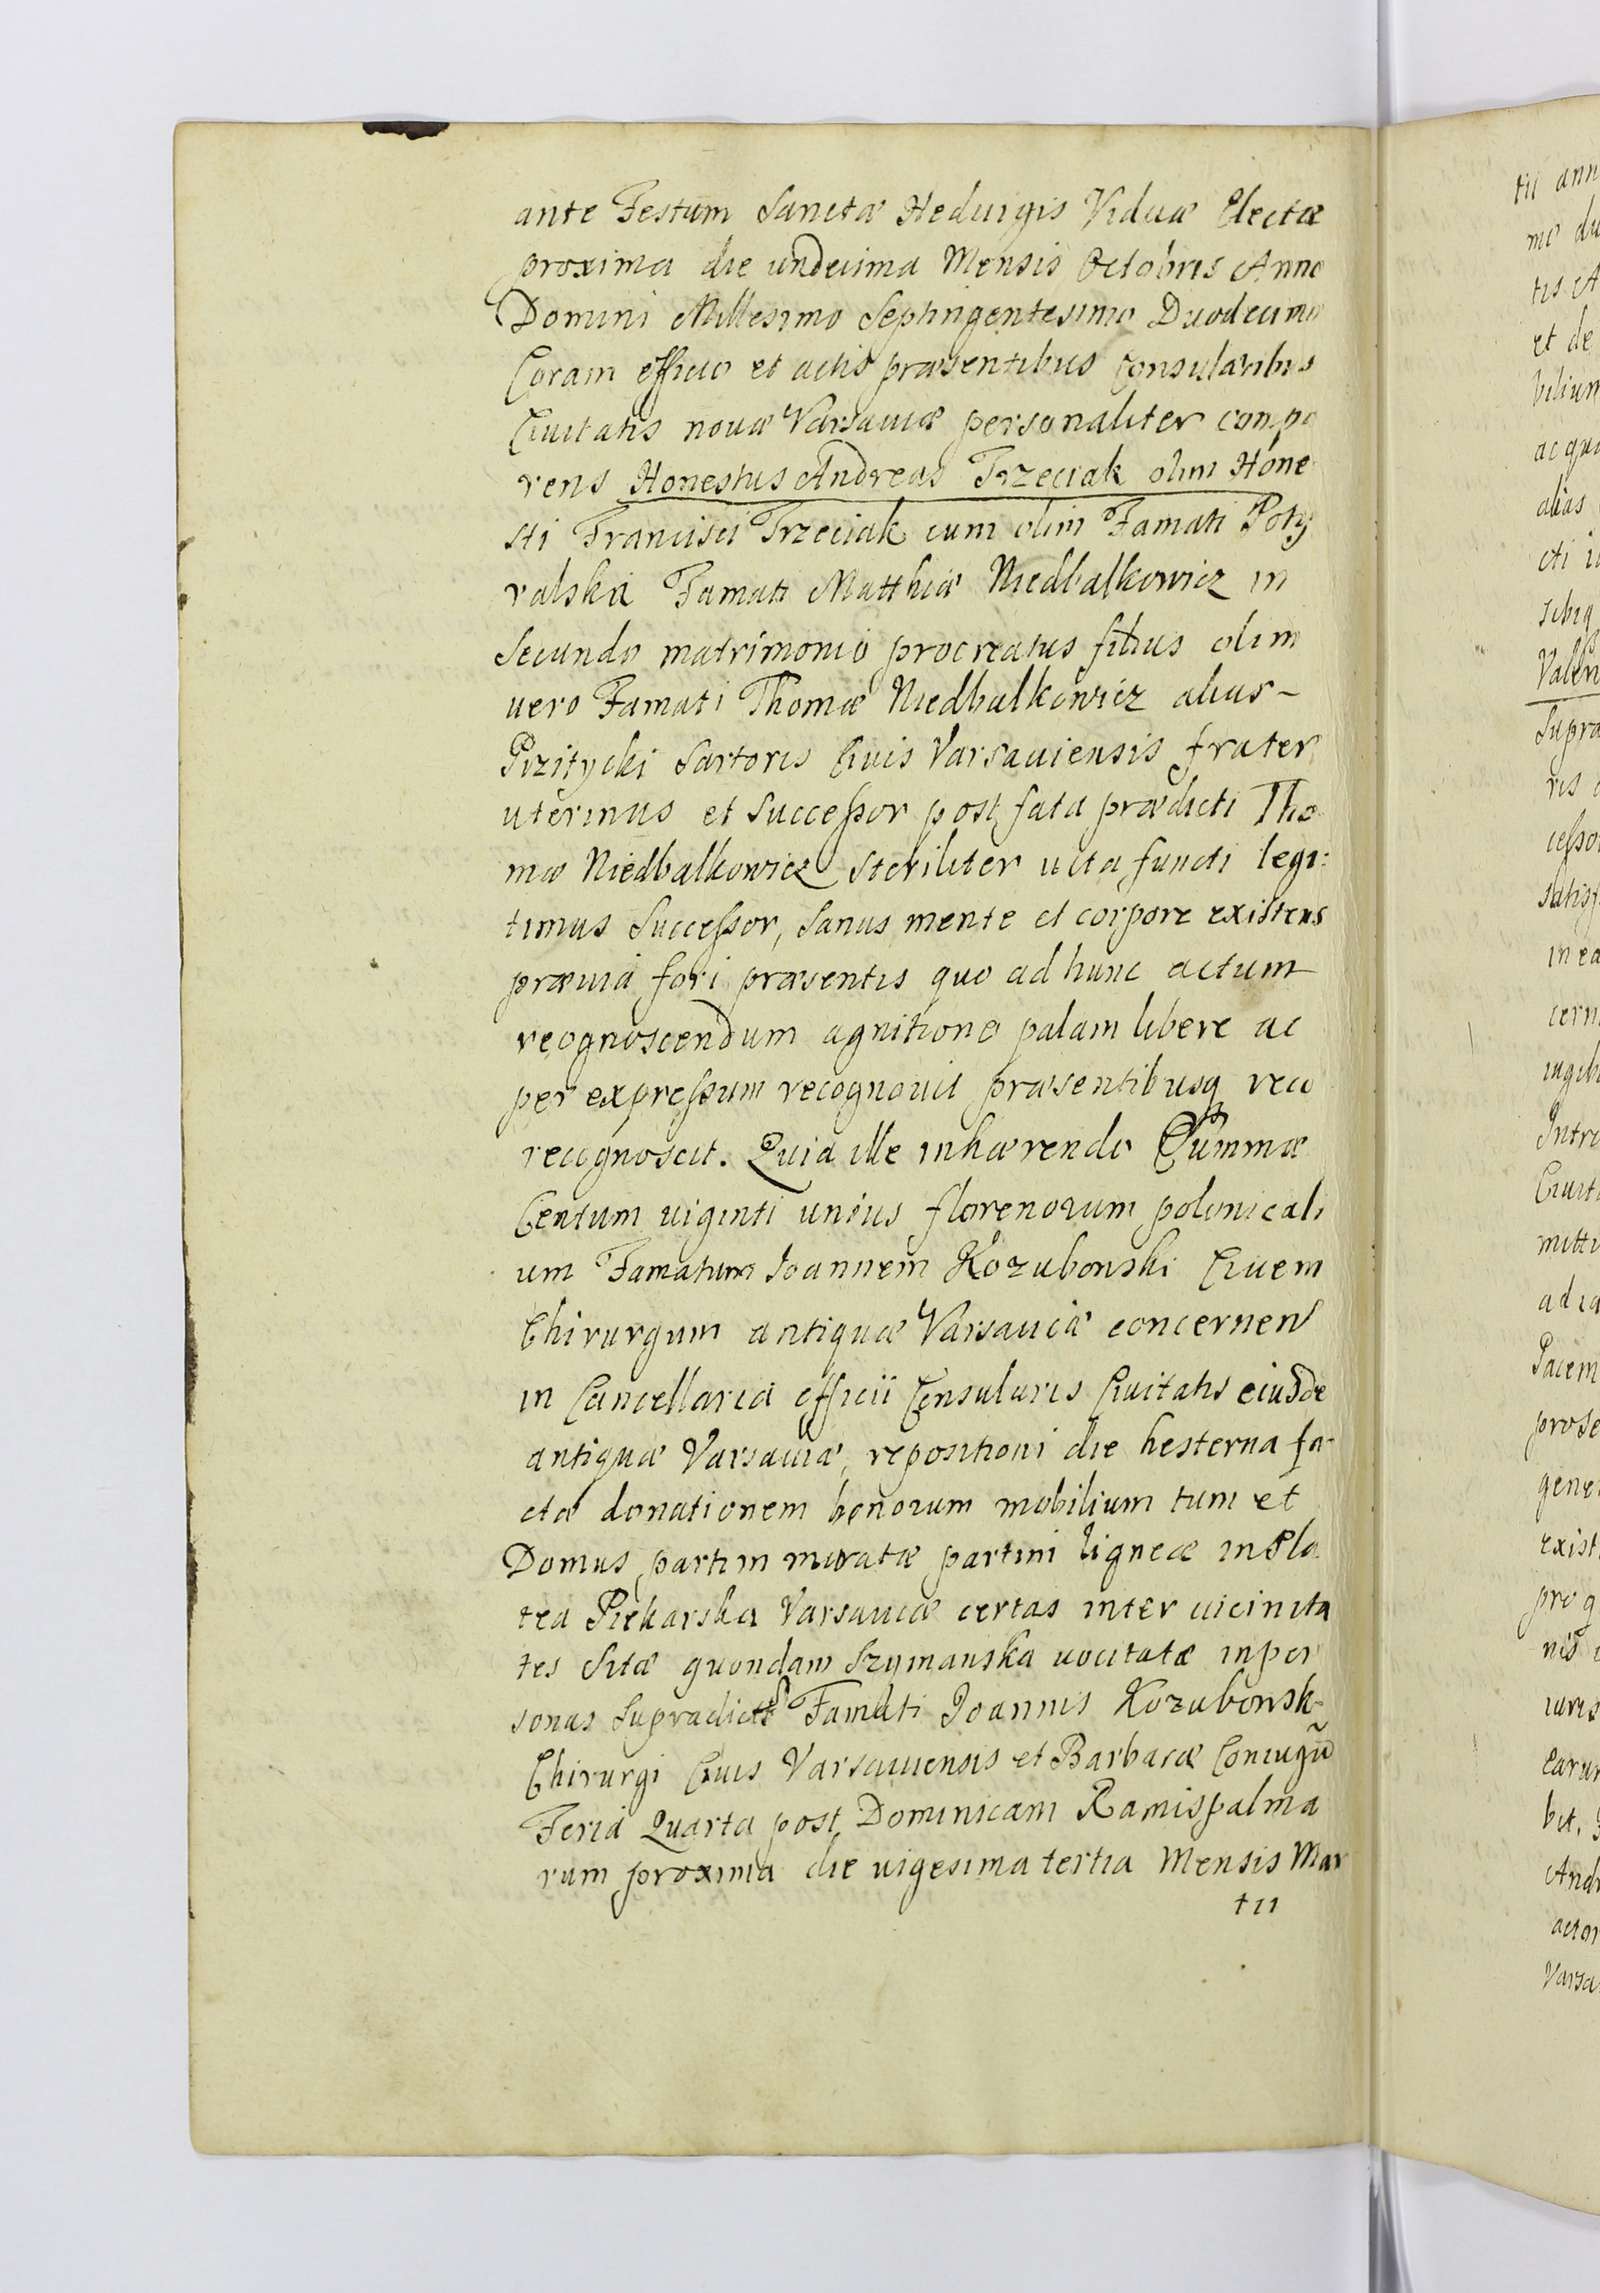 ante Festum Sanctæ Heduigis Viduæ Electæ
proxima die undecima Mensis Octobris Anno
Domini Millesimo Septingentesimo Duodecimo
Coram officio et actis præsentibus Consularibus
Ciuitatis nouæ Varsauiæ personaliter compa
rens Honestus Andreas Trzeciak olim Hone
sti Francisci Trzeciak cum olim Famati Poty
ralska Famati Matthiæ Niedbalkowicz in
Secundo matrimonio procreatus filius olim
uero Famati Thomæ Niedbalkowicz alias-
Przitycki Sartoris Ciuis Varsauiensis frater
uterinus et Successor post fata prædicti Tho
mæ Niedbalkowicz steriliter uita functi legi:
timus Successor, Sanus mente et corpore existens
præuia fori præsentis quo ad hunc actum
recognoscendum agnitione palam libere ac
per expressum recognouit præsentibusq reco
recognoscit. Quia ille inhærendo Summæ
Centum uiginti unius florenorum polonicali
um Famatum Joannem Kozubowski Ciuem
Chirurgum antiquæ Varsauiæ concernen
in Cancellaria officii Consularis Ciuitatis eiusde
antiquæ Varsauiæ, repositioni die hesterna fa-
ctæ donationem bonorum mobilium tum et
Domus partim muratæ partim ligneæ in Pla
tea Piekarska Varsauiæ certas inter uicinita
tes Sitæ quondam Szymanska uocitatæ in per
sonas Supradict Famati Joannis Kozubowsk-
Chirurgi Ciuis Varsauiensis et Barbaræ Coniugũ
Feria Quarta post Dominicam Ramispalma
rum proxima die uigesima tertia Mensis Mar
tii
tii ann
et de
alias
Supra
Ciuit
Pacem
exist
Varsa